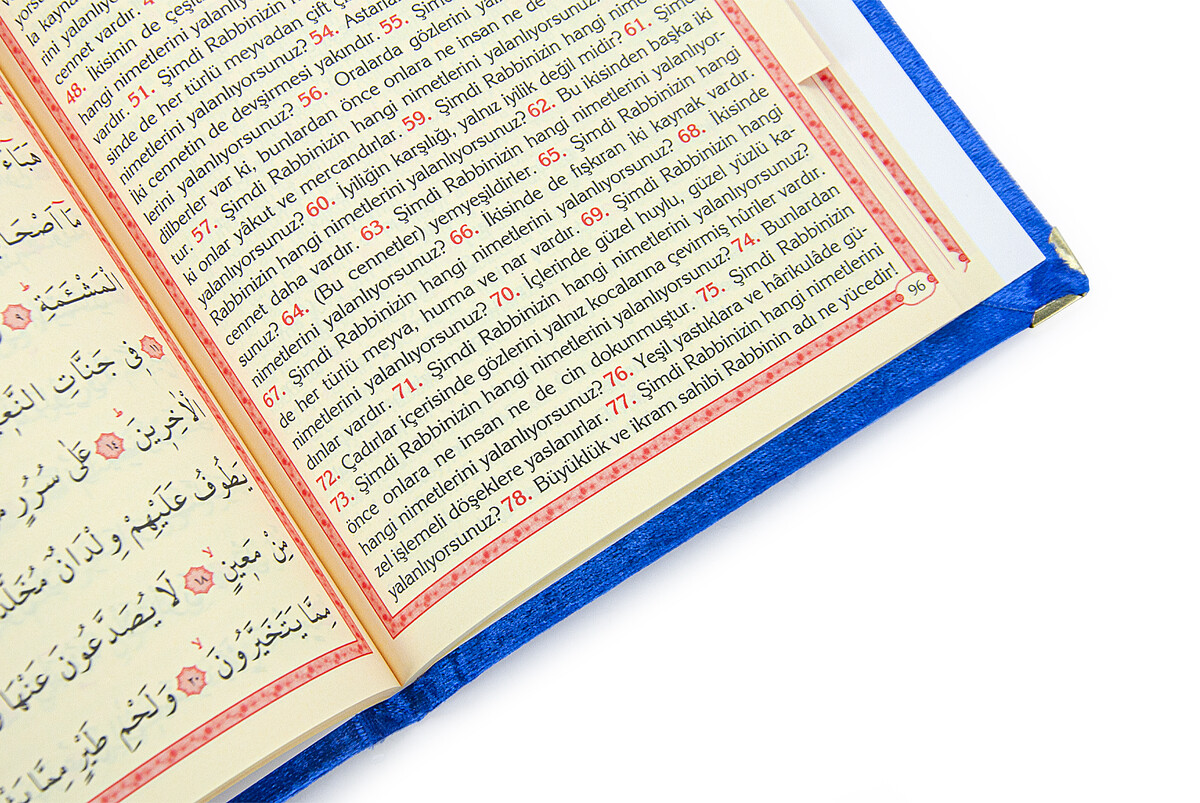 yorsu
la kayna
rini yalanlıyor
cennet vardır. 4
48. İkisinin de çeşi
hangi nimetlerini yalanlıyor
vardır. 51. Şimdi Rabbinizin
sinde de her türlü meyvadan çift ç
nimetlerini yalanlıyorsunuz? 54. Astarla
iki cennetin de devşirmesi yakındır. 55. Şimdi
lerini yalanlıyorsunuz? 56. Oralarda gözlerini yal
dilberler var ki, bunlardan önce onlara ne insan ne de
tur. 57. Şimdi Rabbinizin hangi nimetlerini yalanlıyorsunuz
ki onlar yâkut ve mercandırlar. 59. Şimdi Rabbinizin hangi nime
yalanlıyorsunuz? 60. İyiliğin karşılığı, yalnız iyilik değil midir? 61. Şimd
Rabbinizin hangi nimetlerini yalanlıyorsunuz? 62. Bu ikisinden başka iki
cennet daha vardır. 63. Şimdi Rabbinizin hangi nimetlerini yalanlıyor-
sunuz? 64. (Bu cennetler) yemyeşildirler. 65. Şimdi Rabbinizin hangi
nimetlerini yalanlıyorsunuz? 66. İkisinde de fışkıran iki kaynak vardır.
67. Şimdi Rabbinizin hangi nimetlerini yalanlıyorsunuz? 68. İkisinde
de her türlü meyva, hurma ve nar vardır. 69. Şimdi Rabbinizin hangi
nimetlerini yalanlıyorsunuz? 70. İçlerinde güzel huylu, güzel yüzlü ka-
dınlar vardır. 71. Şimdi Rabbinizin hangi nimetlerini yalanlıyorsunuz?
72. Çadırlar içerisinde gözlerini yalnız kocalarına çevirmiş hûriler vardır.
73. Şimdi Rabbinizin hangi nimetlerini yalanlıyorsunuz? 74. Bunlardan
önce onlara ne insan ne de cin dokunmuştur. 75. Şimdi Rabbinizin
hangi nimetlerini yalanlıyorsunuz? 76. Yeşil yastıklara ve hârikulâde gü-
zel işlemeli döşeklere yaslanırlar. 77. Şimdi Rabbinizin hangi nimetlerini
yalanlıyorsunuz? 78. Büyüklük ve ikram sahibi Rabbinin adı ne yücedir!
96
مَٓا اَصْحَا
الْمَشْـَٔمَةِ ٩
١١ فِي جَنَّاتِ النَّع
الْاٰخِرِينَ ١٤ عَلٰى سُرُرٍ
يَطُوفُ عَلَيْهِمْ وِلْدَانٌ مُخَلَّد
مِنْ مَعِينٍ ١٨ لَا يُصَدَّعُونَ عَنْهَا
مِمَّا يَتَخَيَّرُونَ ٢٠ وَلَحْمِ طَيْرٍ مِمَّا